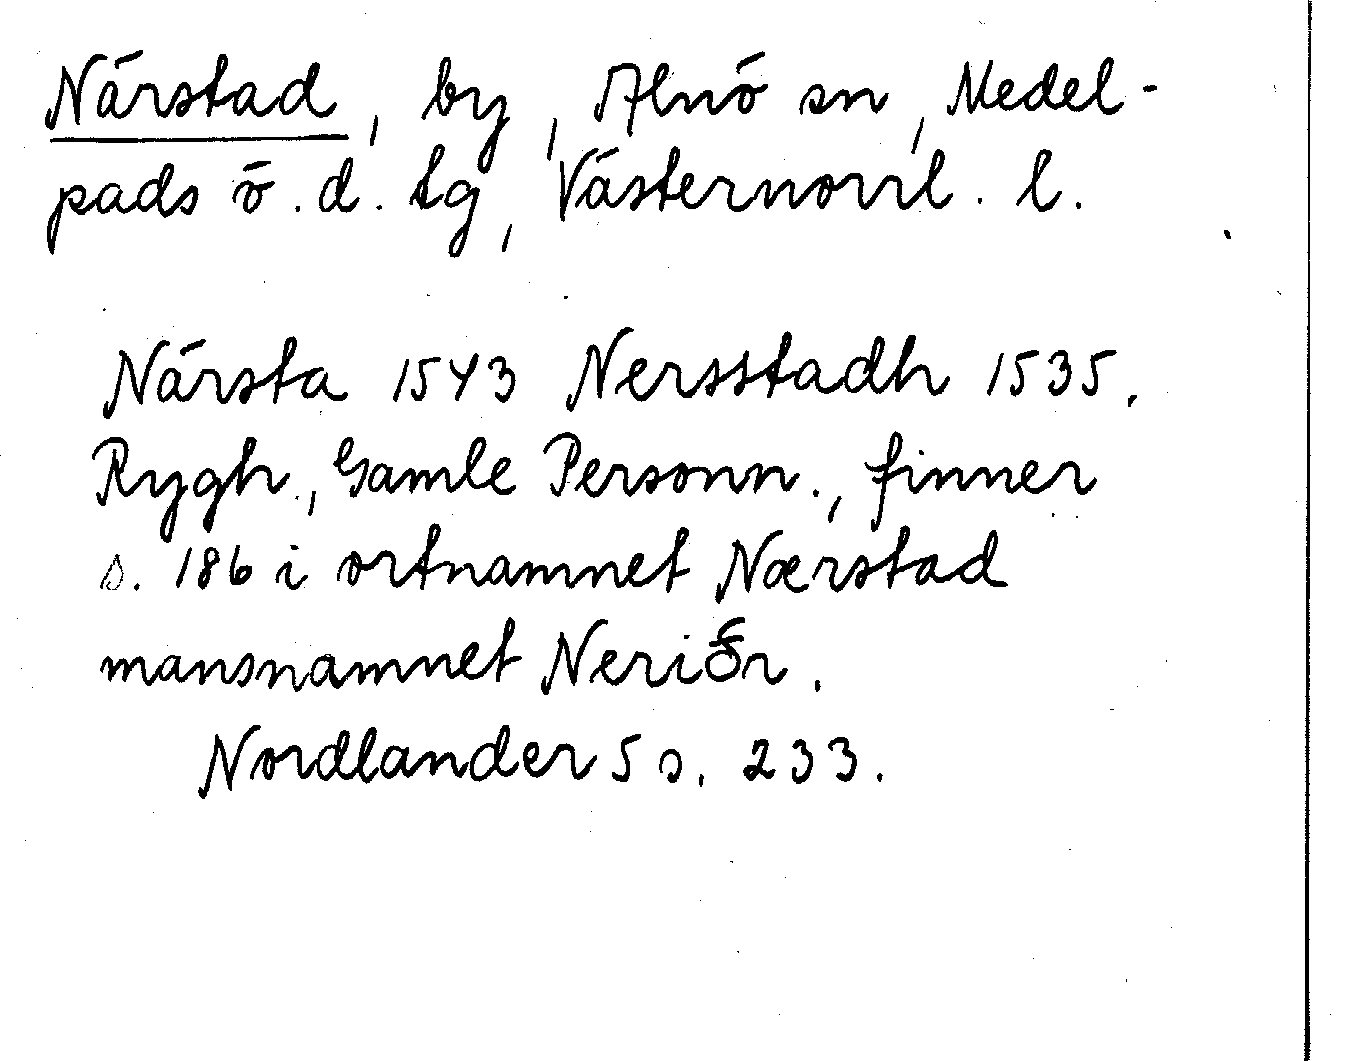 Närstad, by, Alnö sn, Medel-
pads ö. d. tg, Västernorrl. l.
Närsta 1543 Nersstadh 1535.
Rygh, Gamle Personn., finner
s. 186 i ortnamnet Nærstad
mansnamnet Neriðr.
Nordlander 5 s. 233.